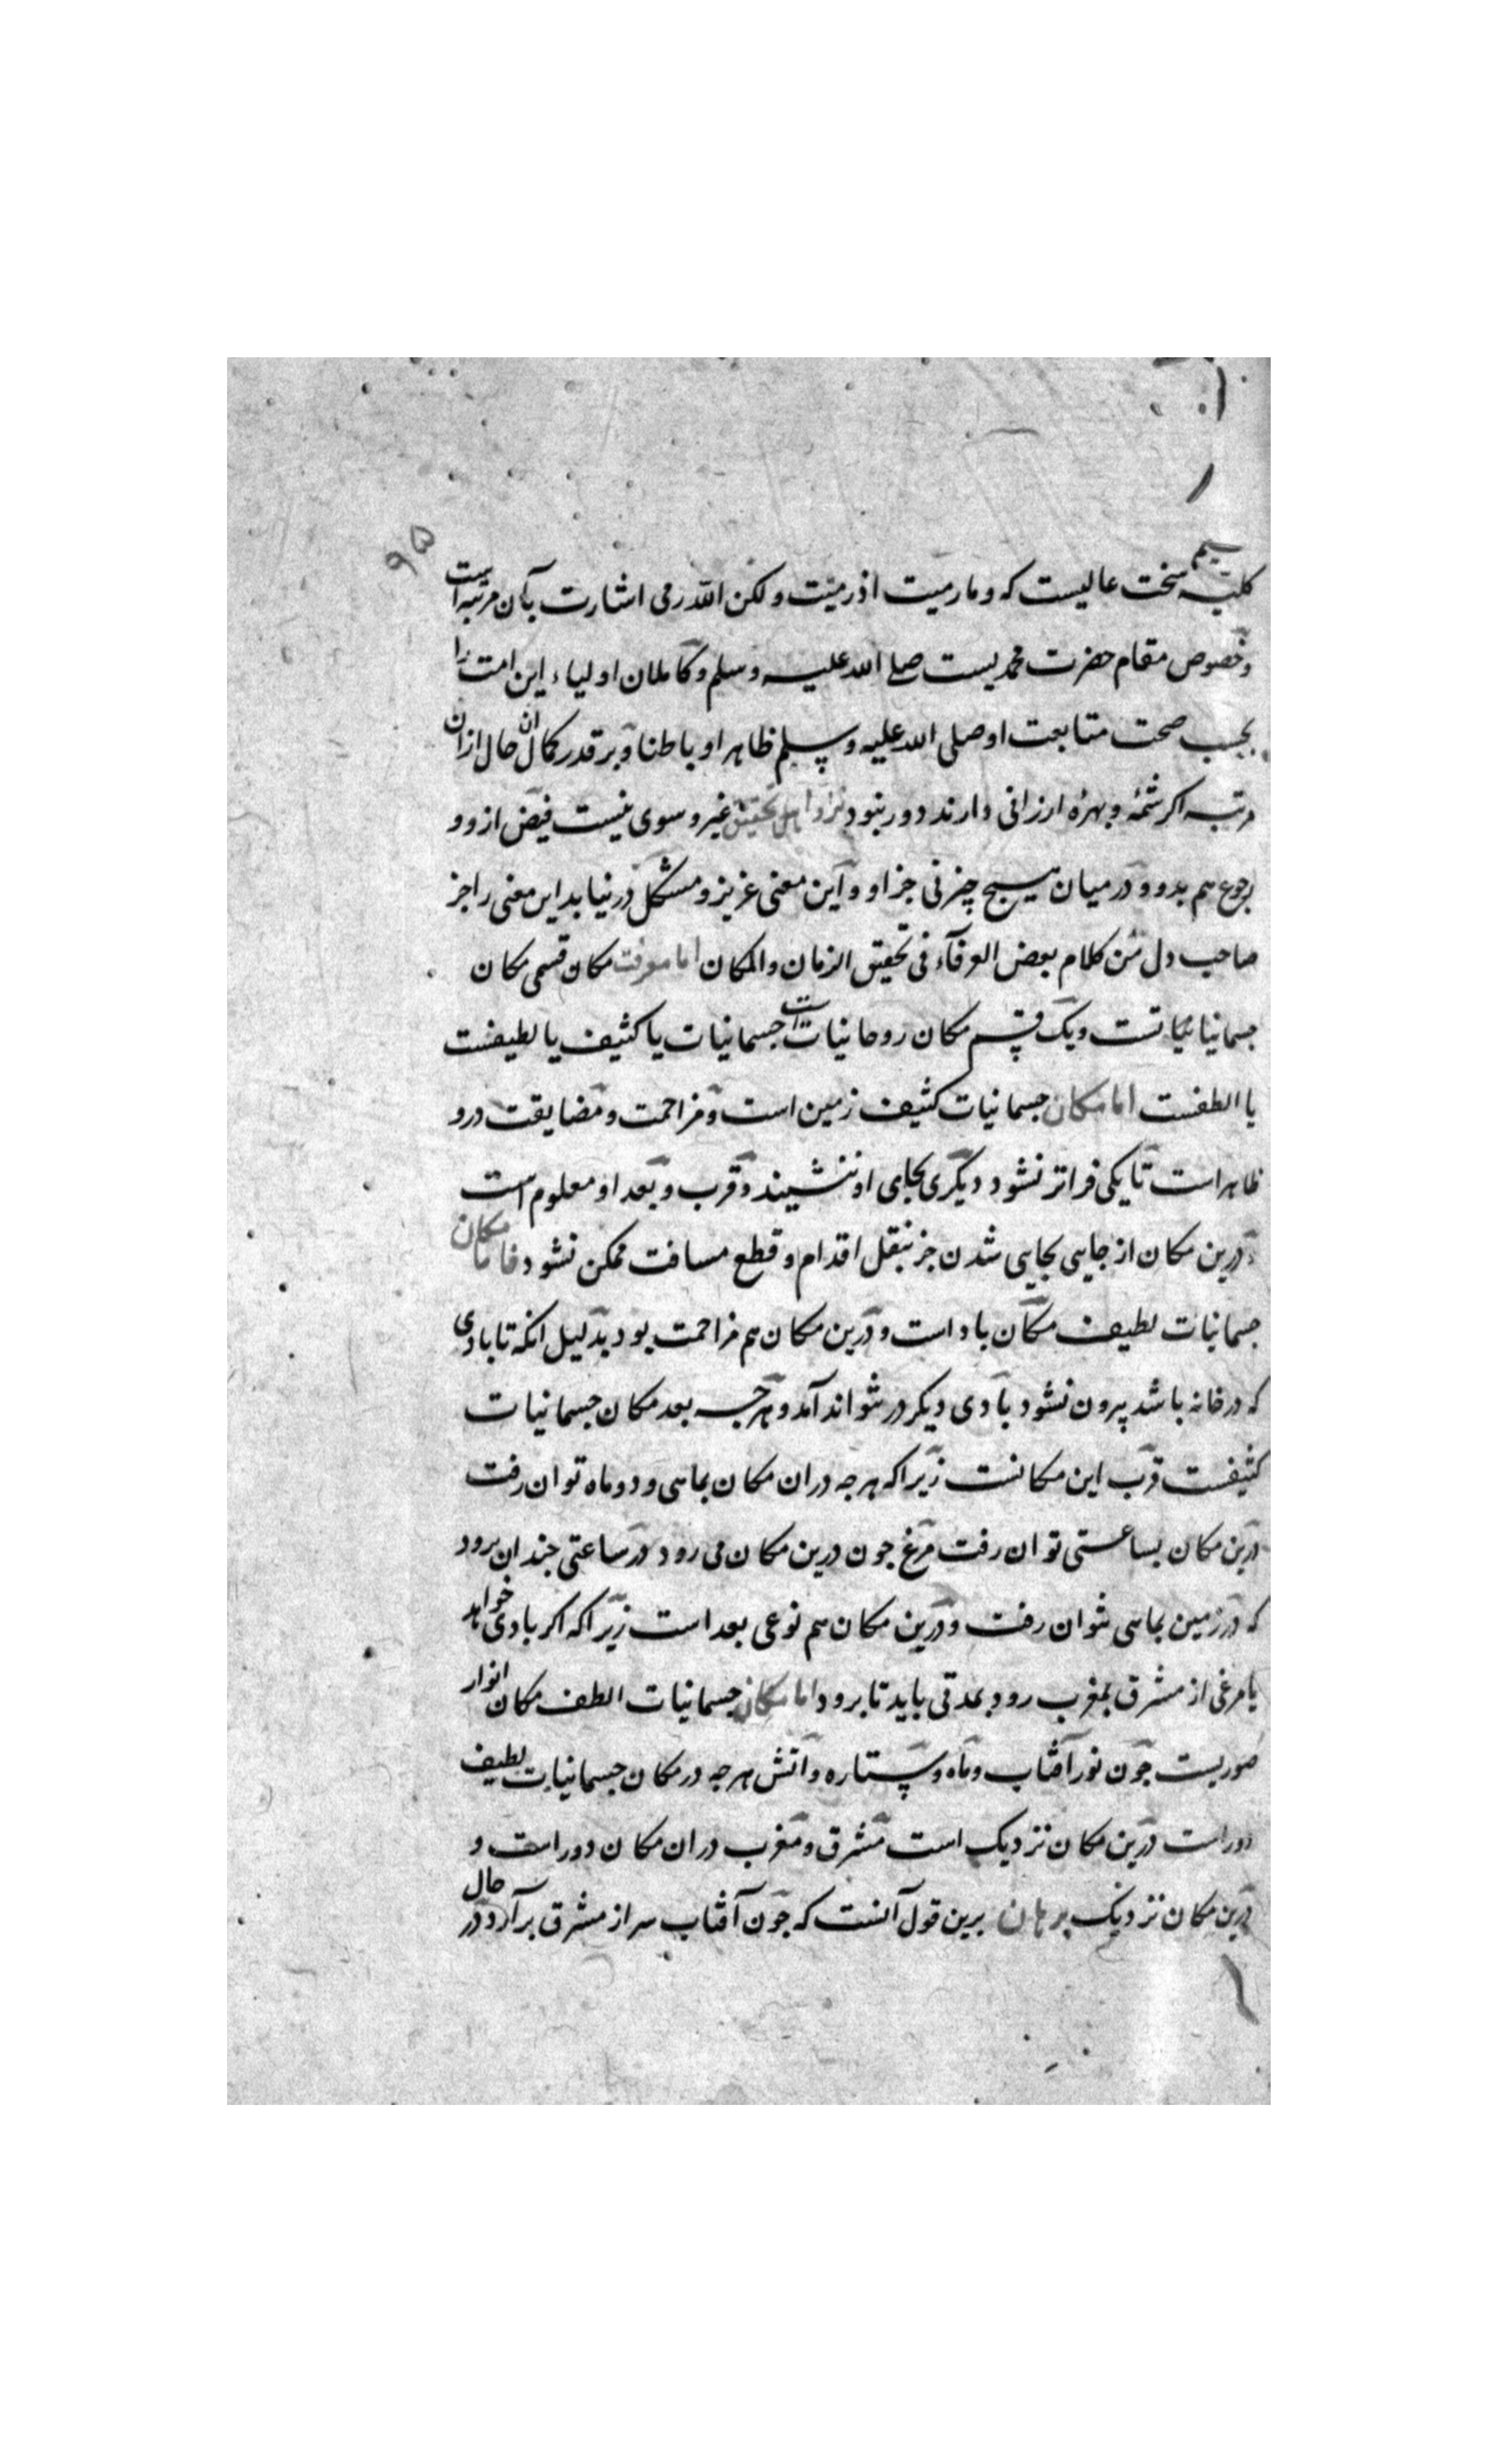 ۹۵
کلیه سخت عالیست که و ما رمیت اذ رمیت و لکن الله رمی اشارت بآن مرتبه است
و خصوص مقام حضرت محمدیست صلی الله علیه و سلم و کاملان اولیاء این امت را
بحسب صحت متابعت او صلی الله علیه و سلم ظاهرا و باطنا و بر قدر کمال آن حال ازان
مرتبه اکر شمهٔ و بهرهٔ ارزانی دارند دور نبود نزد اهل تحقیق غیر و سوی نیست فیض ازو و
رجوع هم بدو و در میان هیچ چیز نی جز او و این معنی عزیز و مشکل در نیابد این معنی را جز
صاحب دل من کلام بعض العرفآء فی تحقیق الزمان والمکان اما معرفت مکان قسمی مکان
جسمانیاتست و یک قسم مکان روحانیات است جسمانیات یا کثیف یا لطیفست
یا الطفست اما مکان جسمانیات کثیف زمین است و مزاحمت و مضایقت درو
ظاهر است تا یکی فراتر نشود دیکری بجای او ننشیند و قرب و بعد او معلوم است
درین مکان از جایی بجایی شدن جز بنقل اقدام و قطع مسافت ممکن نشود فاما مکان
جسمانیات لطیف مکان باد است و درین مکان هم مزاحمت بود بدلیل انکه تا بادی
که در خانه باشد بیرون نشود بادی دیکر در نتواند آمد و هرچه بعد مکان جسمانیات
کثیفست قرب این مکانست زیرا که هرچه دران مکان بماهی و دو ماه توان رفت
درین مکان بساعتی توان رفت مرغ چون درین مکان می رود در ساعتی چندان برود
که در زمین بماهی نتوان رفت و درین مکان هم نوعی بعد است زیرا که اکر بادی خواهد
یا مرغی از مشرق بمغرب رود بمدتی باید تا برود اما مکان جسمانیات الطف مکان انوار
صوریست چون نور آفتاب و ماه و ستاره و آتش هرچه در مکان جسمانیات لطیف
دور است درین مکان نزدیک است مشرق و مغرب دران مکان دور است و
درین مکان نزدیک برهان برین قول آنست که چون آفتاب سر از مشرق برآرد در حال